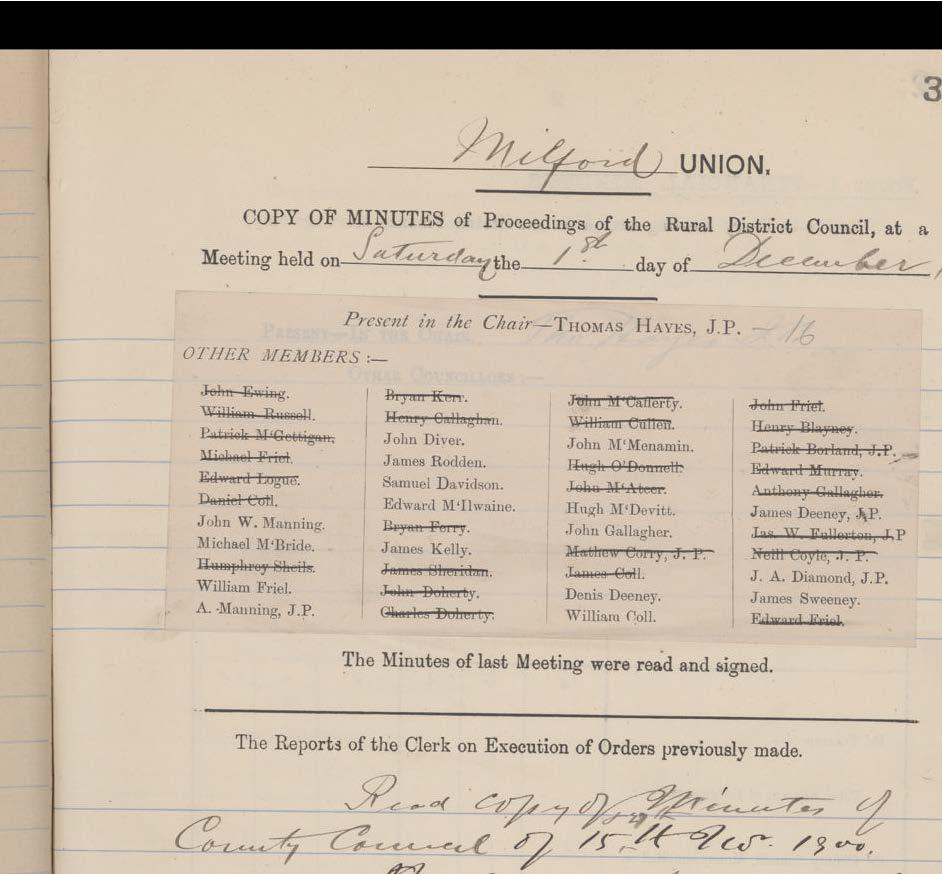 3
Milford UNION.
COPY OF MINUTES of Proceedings of the Rural District Council, at a
Meeting held on Saturday the 1st day of December,
Present in the Chair—THOMAS HAYES, J.P. – 16
OTHER MEMBERS :—
John Ewing.
William Russell.
Patrick M'Gettigan.
Michael Friel.
Edward Logue.
Daniel Coll.
John W. Manning.
Michael M'Bride.
Humphrey Sheils.
William Friel.
A. Manning, J.P.
Bryan Kerr.
Henry Callaghan.
John Diver.
James Rodden.
Samuel Davidson.
Edward M'Ilwaine.
Bryan Ferry.
James Kelly.
James Sheridan.
John Doherty.
Charles Doherty.
John M'Cafferty.
William Cullen.
John M'Menamin.
Hugh O'Donnell.
John M'Ateer.
Hugh M'Devitt.
John Gallagher.
Mathew Corry, J. P.
James Coll.
Denis Deeney.
William Coll.
John Friel.
Henry Blayney.
Patrick Borland, J.P.
Edward Murray.
Anthony Gallagher.
James Deeney, J.P.
Jas. W. Fullerton, J.P
Neill Coyle, J. P.
J. A. Diamond, J.P.
James Sweeney.
Edward Friel.
The Minutes of last Meeting were read and signed.
The Reports of the Clerk on Execution of Orders previously made.
Read copy of Minutes of
County Council of 15th Nov. 1900.